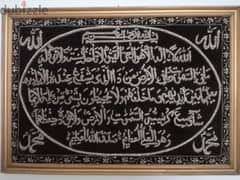 dubizzle
بسم الله الرحمن الرحيم
الله
الله
الله لا إله إلا هو الحي القيوم لا تأخذه سنة ولا نوم له
ما في السموت وما في الأرض من ذا الذي يشفع عنده إلا بإذنه
يعلم ما بين أيديهم وما خلفهم ولا يحيطون بشيء من علمه إلا بما
شاء وسع كرسيه السموت والأرض ولا يؤده حفظهما
وهو العلي العظيم صدق الله العظيم
محمد
محمد